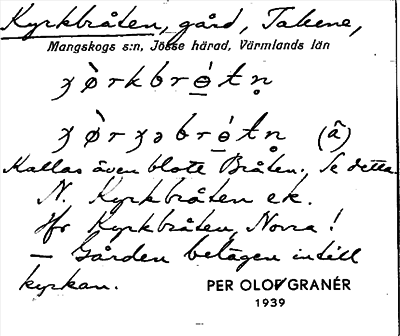 Kyrkbråten, gård, Takene,
Mangskogs s:n, Jösse härad, Värmlands län
(â)
Kallas även blott Bråten. Se detta.
N. Kyrkbråten ek.
Jfr Kyrkbråten, Norra!
– Gården belägen intill
kyrkan.
PER OLOF GRANÉR
1939